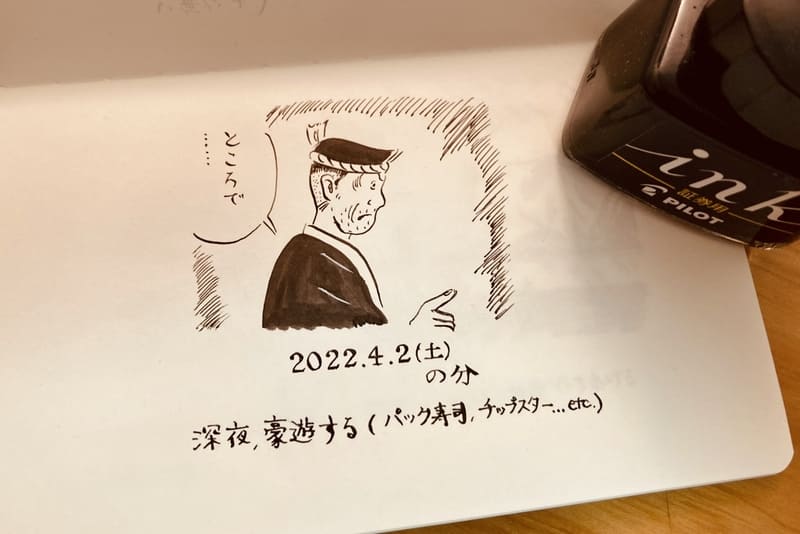 ところで
……
2022.4.2(土)
の分
深夜,豪遊する(パック寿司,チップスター...etc.)
ink
証券用
PILOT